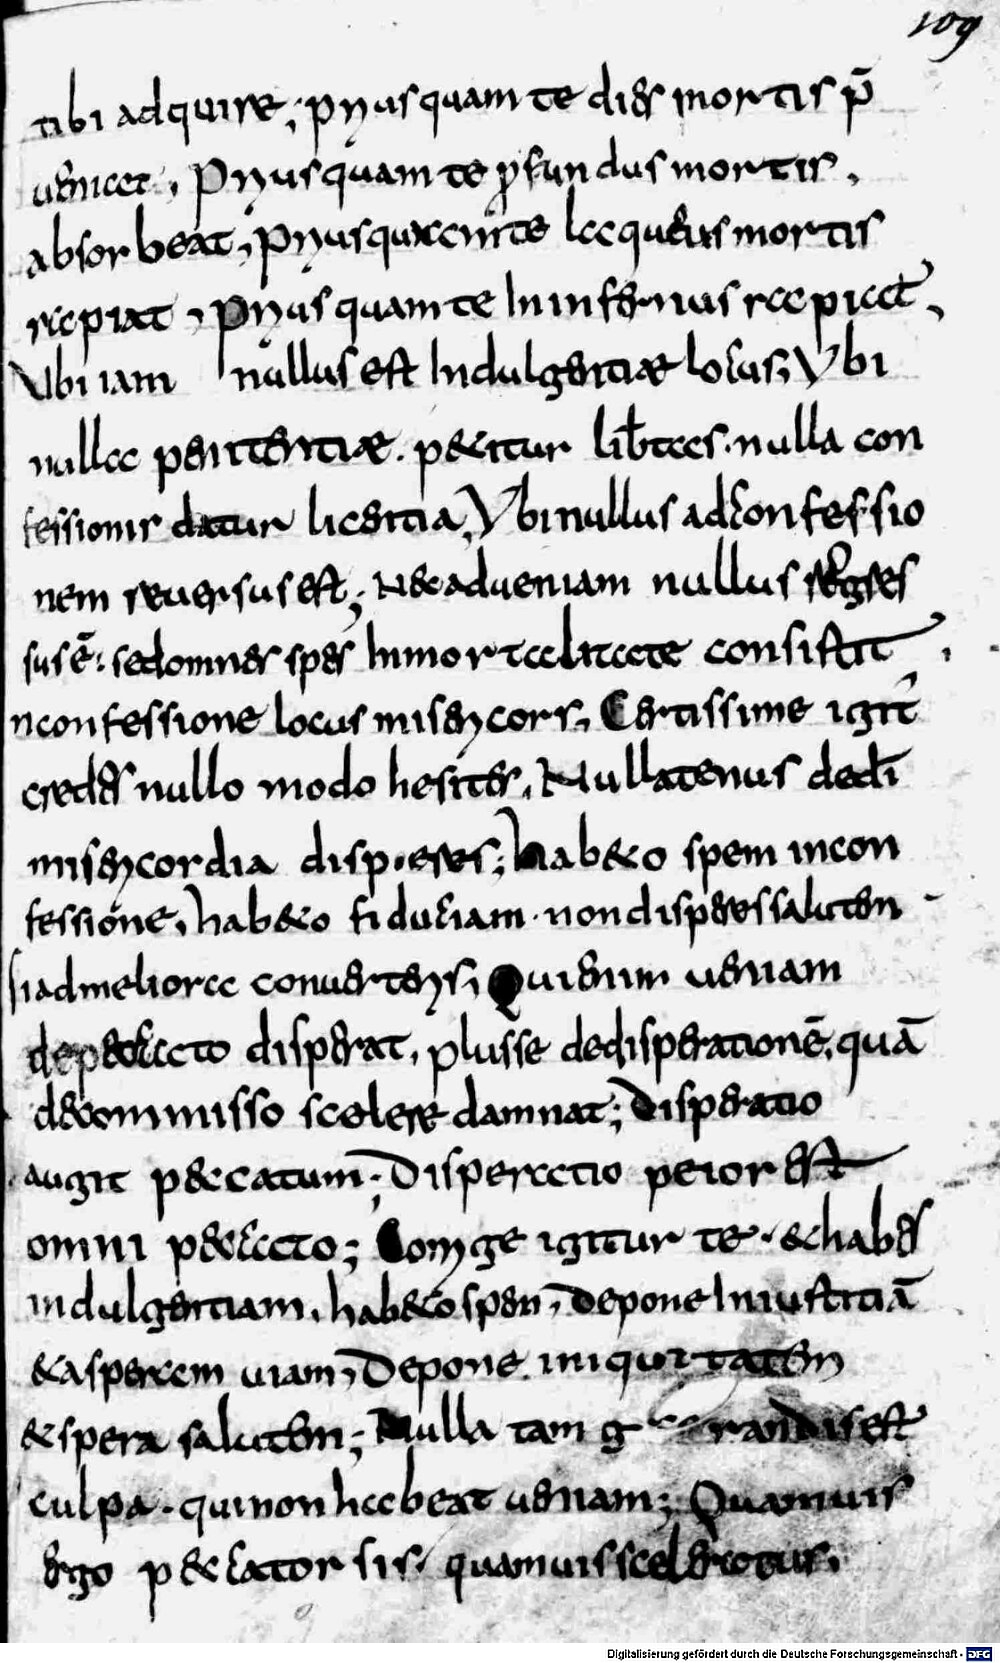 109
tibi adquire; pryus quam te dies mortis p̄
ueniat, Pryus quam te p̲fundus mortis,
absorbeat, Pryus quam te laqueus mortis
rapiat, Pryus quam te Infernus rapiat,
Vbi iam nullus est Indulgentiae locus, Vbi
nulla penitentiae. petitur lib̄tas. nulla con
fessionis datur licentia, Vbi nullus ad confessio
nem reuersus est; Nec ad ueniam nullus regres
sus ē: sed omnes spes Inmortalitate consistit,
nconfessione locus miserycors, Certissime igit̄
credes nullo modo hesites, Nullatenus de dī
miserycordia disp.eres; habeto spem in con
fessione, habeto fiduciam. non disperes salutem
si ad meliora conuerterys, Qui enim ueniam
de peccato disperat, plus se de disperationē, quā
de commisso scelere damnat; Disperatio
augit peccatum; Disperatio peior est
omni peccato; Coryge igitur te. et habes
indulgentiam, habeto spem, Depone Iniustitiā
et asperam uiam, Depone iniquitatem
et spera salutem; Nulla tam g randis est
culpa. qui non habeat ueniam; Quamuis
ergo peccator sis, quamuis sceleratus,
Digitalisierung gefördert durch die Deutsche Forschungsgemeinschaft - DFG